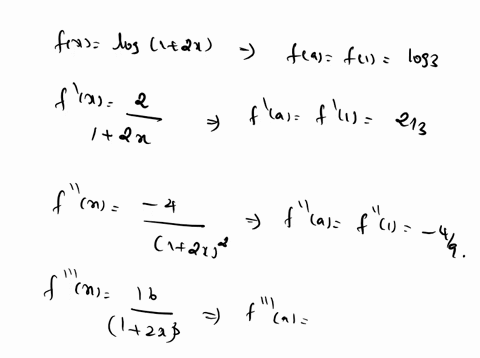 f(x) = log (1+2x) → f(a) = f(1) = log3
f'(x) = 2/(1+2x) ⇒ f'(a) = f'(1) = 2/3
f''(x) = -4/(1+2x)² ⇒ f''(a) = f''(1) = -4/9.
f'''(x) = 16/(1+2x)³ ⇒ f'''(a) =